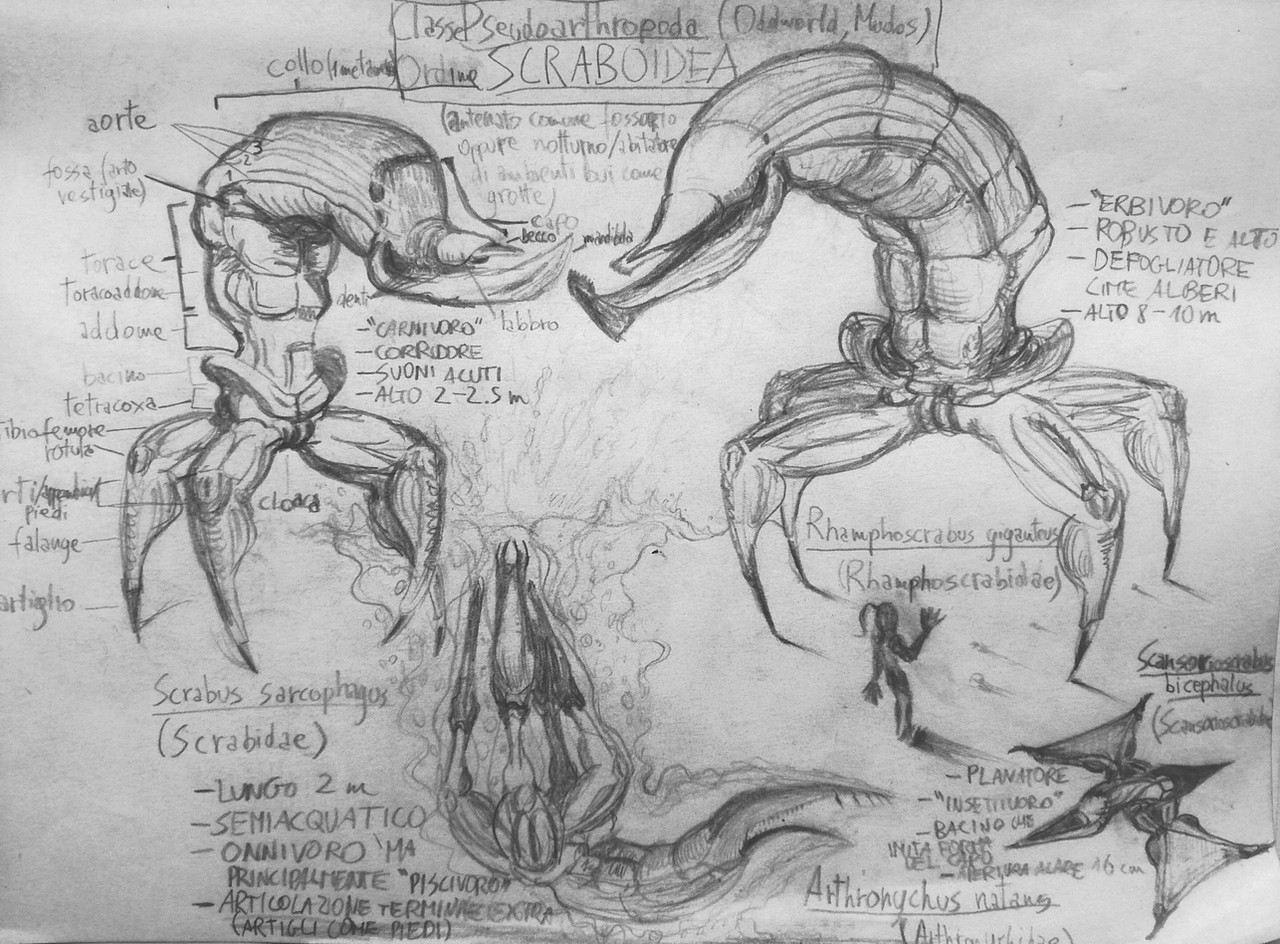 Classe Pseudoarthropoda (Oddworld, Mudos)
Ordine SCRABOIDEA
(antenato comune fossorio
oppure notturno/abitatore
di ambienti bui come
grotte)
collo
aorte
1
2
3
fossa (arto
vestigiale)
torace
toracoaddome
addome
bacino
tetracoxa
tibiofemore
rotula
piedi
falange
artiglio
cloaca
capo
becco
mandibola
denti
labbro
-"CARNIVORO"
-CORRIDORE
-SUONI ACUTI
-ALTO 2-2.5 m
Scrabus sarcophagus
(Scrabidae)
-"ERBIVORO"
-ROBUSTO E ALTO
-DEFOGLIATORE
CIME ALBERI
-ALTO 8-10 m
Rhamphoscrabus giganteus
(Rhamphoscrabidae)
-LUNGO 2 m
-SEMIACQUATICO
-ONNIVORO MA
PRINCIPALMENTE "PISCIVORO"
-ARTICOLAZIONE TERMINALE EXTRA
(ARTIGLI COME PIEDI)
Arthronychus natans
Scansorioscrabus
bicephalus
-PLANATORE
-"INSETTIVORO"
-BACINO CHE
IMITA FORMA
DEL CAPO
-APERTURA ALARE 16 cm